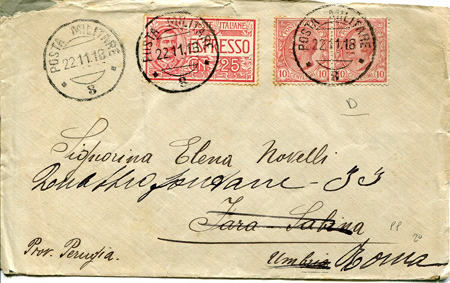 POSTA MILITARE
22.11.18
8
POSTA MILITARE
22.11.18
8
ITALIANE
ESPRESSO
25
POSTA MILITARE
22.11.18
8
10 10 10
D
Signorina Elena Novelli
Quattro fontane - 33
Fara-Sabina
Umbria Roma
Prov. Perugia.